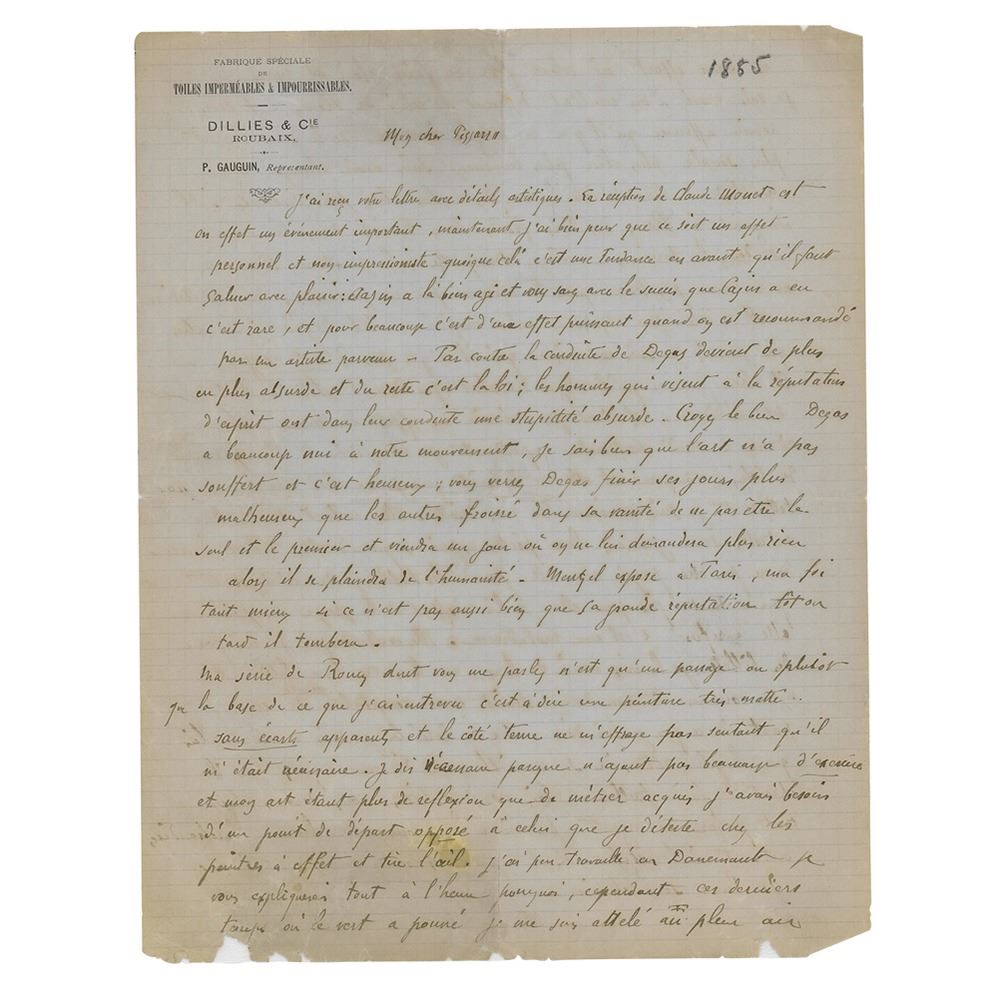 FABRIQUE SPÉCIALE
DE
TOILES IMPERMÉABLES & IMPOURRISSABLES.
DILLIES & CIE
ROUBAIX.
P. GAUGUIN, Représentant.
1885
Mon cher Pissarro
J'ai reçu votre lettre avec détails artistiques. La réception de Claude Monet est
en effet un événement important, maintenant j'ai bien peur que ce soit un effet
personnel et non impressioniste quoique celà c'est une tendance en avant qu'il faut
saluer avec plaisir: Cazin a là bien agi et vous savez avec le succès que Cazin a eu
c'est rare, et pour beaucoup c'est d'un effet puissant quand on est recommandé
par un artiste parvenu - Par contre la conduite de Degas devient de plus
en plus absurde et du reste c'est la loi; les hommes qui visent à la réputation
d'esprit ont dans leur conduite une stupidité absurde. Croyez le bien Degas
a beaucoup nui à notre mouvement, je sais bien que l'art n'a pas
souffert et c'est heureux; vous verrez Degas finir ses jours plus
malheureux que les autres froissé dans sa vanité de ne pas être le
seul et le premier et viendra un jour où on ne lui demandera plus rien
alors il se plaindra de l'humanité - Mentzel expose à Paris, ma foi
tant mieux si ce n'est pas aussi bien que sa grande réputation tot ou
tard il tombera.
Ma série de Rouen dont vous me parlez n'est qu'un passage ou plutôt
que la base de ce que j'ai entrevu c'est à dire une peinture très matte..
sans écarts apparents et le côté terne ne m'effraye pas sentant qu'il
m'était nécessaire. Je dis nécessaire parceque n'ayant pas beaucoup d'exercice
et mon art étant plus de reflexion que de métier acquis j'avais besoin
d'un point de départ opposé à celui que je déteste chez les
peintres à effet et tire l'œil. J'ai peu travaillé au Danemark je
vous expliquerai tout à l'heure pourquoi, cependant ces derniers
temps où le vert a poussé je me suis attelé au plein air